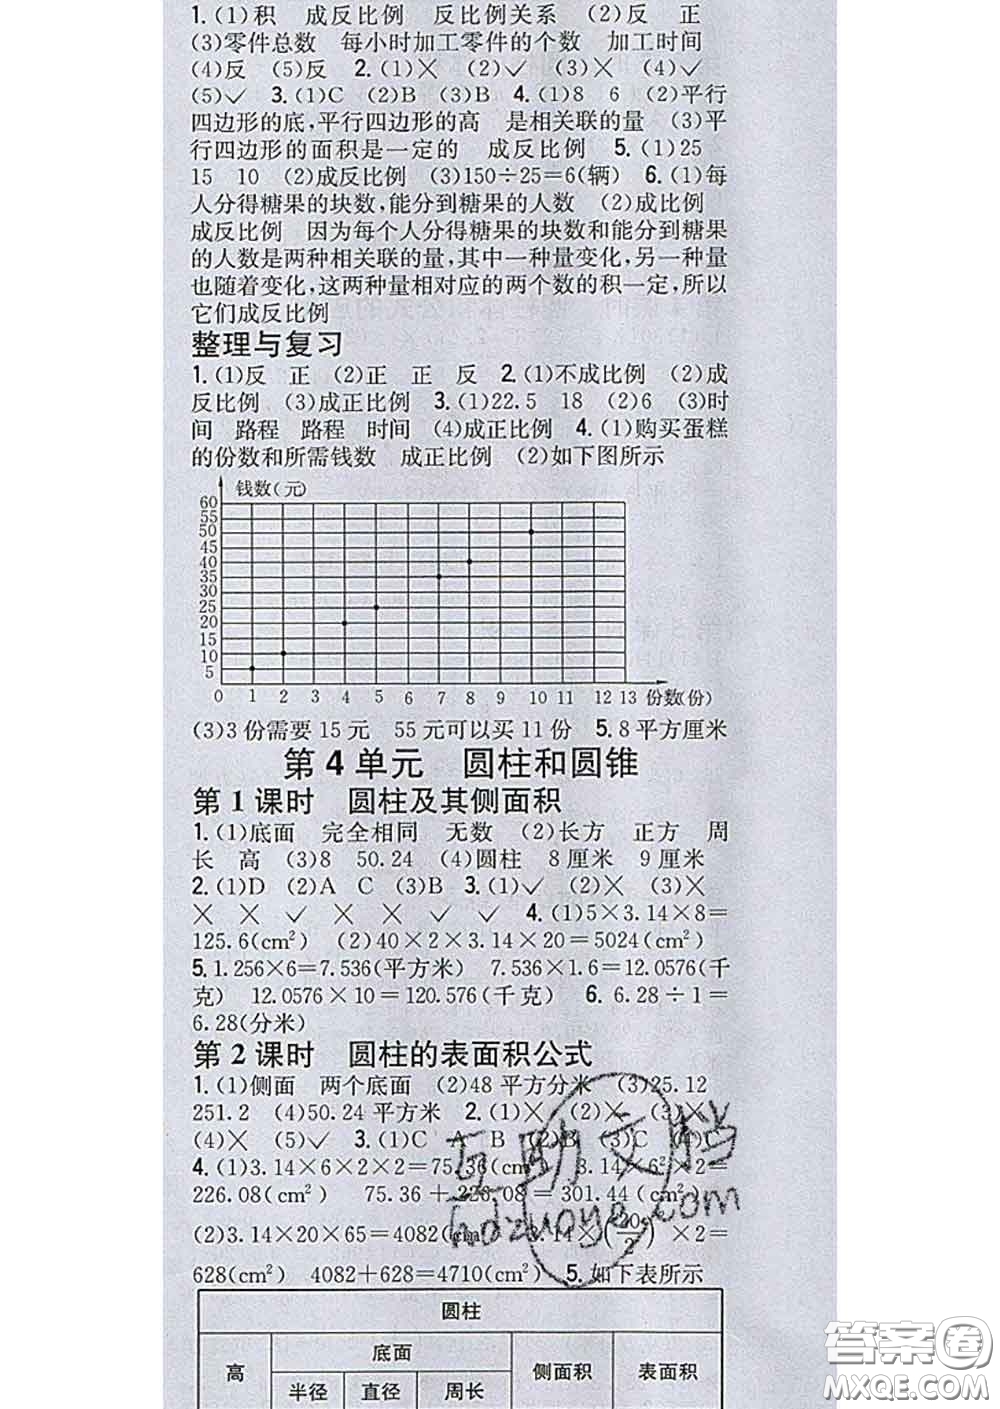 1.(1)积　成反比例　反比例关系　(2)反　正
(3)零件总数　每小时加工零件的个数　加工时间
(4)反　(5)反　2.(1)×　(2)✓　(3)×　(4)✓
(5)✓　3.(1)C　(2)B　(3)B　4.(1)8　6　(2)平行
四边形的底,平行四边形的高　是相关联的量　(3)平
行四边形的面积是一定的　成反比例　5.(1)25
15　10　(2)成反比例　(3)150÷25=6(辆)　6.(1)每
人分得糖果的块数,能分到糖果的人数　(2)成比例
成反比例　因为每个人分得糖果的块数和能分到糖果
的人数是两种相关联的量,其中一种量变化,另一种量
也随着变化,这两种量相对应的两个数的积一定,所以
它们成反比例
整理与复习
1.(1)反　正　(2)正　正　反　2.(1)不成比例　(2)成
反比例　(3)成正比例　3.(1)22.5　18　(2)6　(3)时
间　路程　路程　时间　(4)成正比例　4.(1)购买蛋糕
的份数和所需钱数　成正比例　(2)如下图所示
钱数(元)
60
55
50
45
40
35
30
25
20
15
10
5
0 1 2 3 4 5 6 7 8 9 10 11 12 13 份数(份)
(3)3份需要15元　55元可以买11份　5.8平方厘米
第4单元　圆柱和圆锥
第1课时　圆柱及其侧面积
1.(1)底面　完全相同　无数　(2)长方　正方　周
长　高　(3)8　50.24　(4)圆柱　8厘米　9厘米
2.(1)D　(2)A　C　(3)B　3.(1)✓　(2)×　(3)×
×　×　✓　×　×　✓　✓　4.(1)5×3.14×8=
125.6(cm²)　(2)40×2×3.14×20=5024(cm²)
5.1.256×6=7.536(平方米)　7.536×1.6=12.0576(千
克)　12.0576×10=120.576(千克)　6.6.28÷1=
6.28(分米)
第2课时　圆柱的表面积公式
1.(1)侧面　两个底面　(2)48平方分米　(3)25.12
251.2　(4)50.24平方米　2.(1)×　(2)×　(3)×
(4)×　(5)✓　3.(1)C　A　B　(2)B　(3)C　(4)C
4.(1)3.14×6×2×2=75.36(cm²)　3.14×6²×2=
226.08(cm²)　75.36+226.08=301.44(cm²)
(2)3.14×20×65=4082(cm²)　3.14×(20/2)²×2=
628(cm²)　4082+628=4710(cm²)　5.如下表所示
圆柱
高　底面　侧面积　表面积
半径　直径　周长
互助文档
hdzuoye.com
答案圈
MXQE.COM